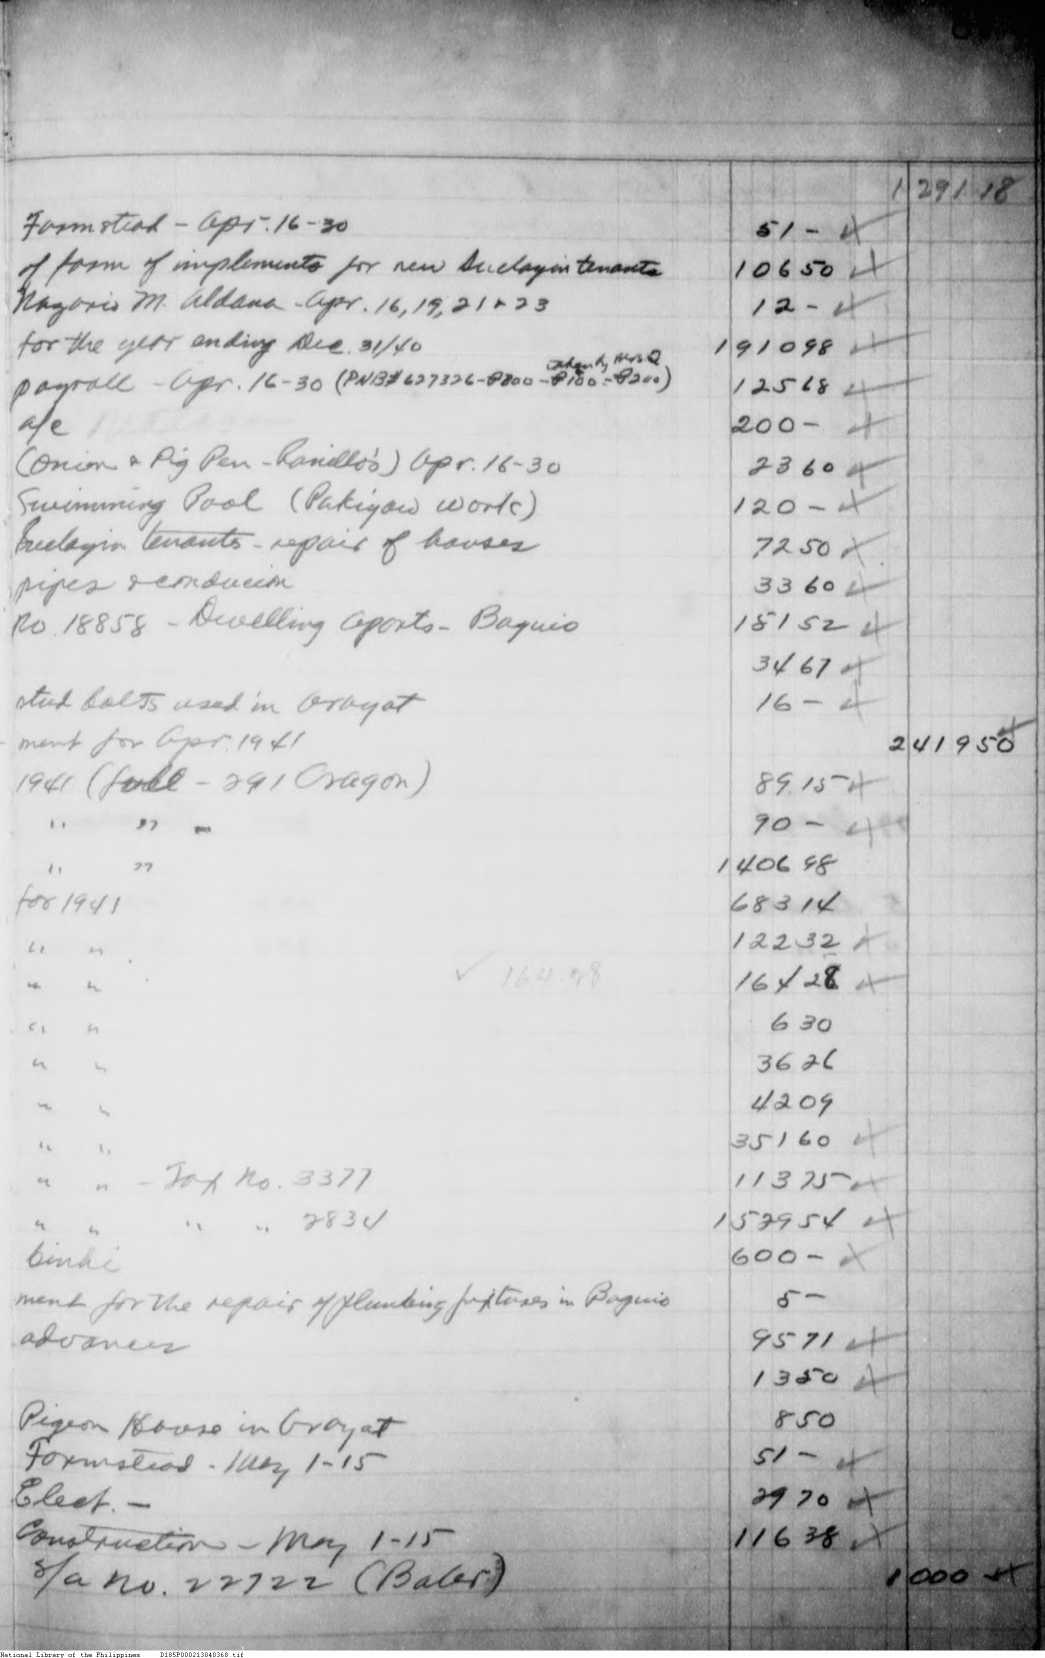 1 291 18
Farmstead - Apr. 16-30 51 -
of farm of implements for new tenants 106 50
Nazario M. Aldana - Apr. 16, 19, 21 & 23 12 -
for the year ending Dec. 31/40 1910 98
payroll - Apr. 16-30 (PNB# 627326 - ₱300 - ₱100 - ₱200) 125 68
a/c 200 -
(Onion & Pig Pen - ) Apr. 16-30 23 60
Swimming Pool (Pakiyaw work) 120 -
tenants - repair of houses 72 50
pipes & 33 60
No. 18858 - Dwelling Aparts - Baguio 181 52
34 67
stud bolts used in Arayat 16 -
ment for Apr. 1941 2419 50
1941 (full - 291 Oragon) 89.15
" " - 90 -
" " 1406 98
for 1941 683 14
" " 122 32
" " ✓ 164.28 164 28
" " 6 30
" " 36 26
" " 42 09
" " 351 60
" " - Tax No. 3377 113 75
" " " " 2834 1529 54
binhi 600 -
ment for the repair of plumbing fixtures in Baguio 5 -
advances 95 71
13 50
Pigeon House in Arayat 8 50
Farmstead - May 1-15 51 -
Elect. - 29 70
Construction - May 1-15 116 38
s/a no. 22722 (Baler) 1 000 -
National Library of the Philippines D185P000213040360.tif